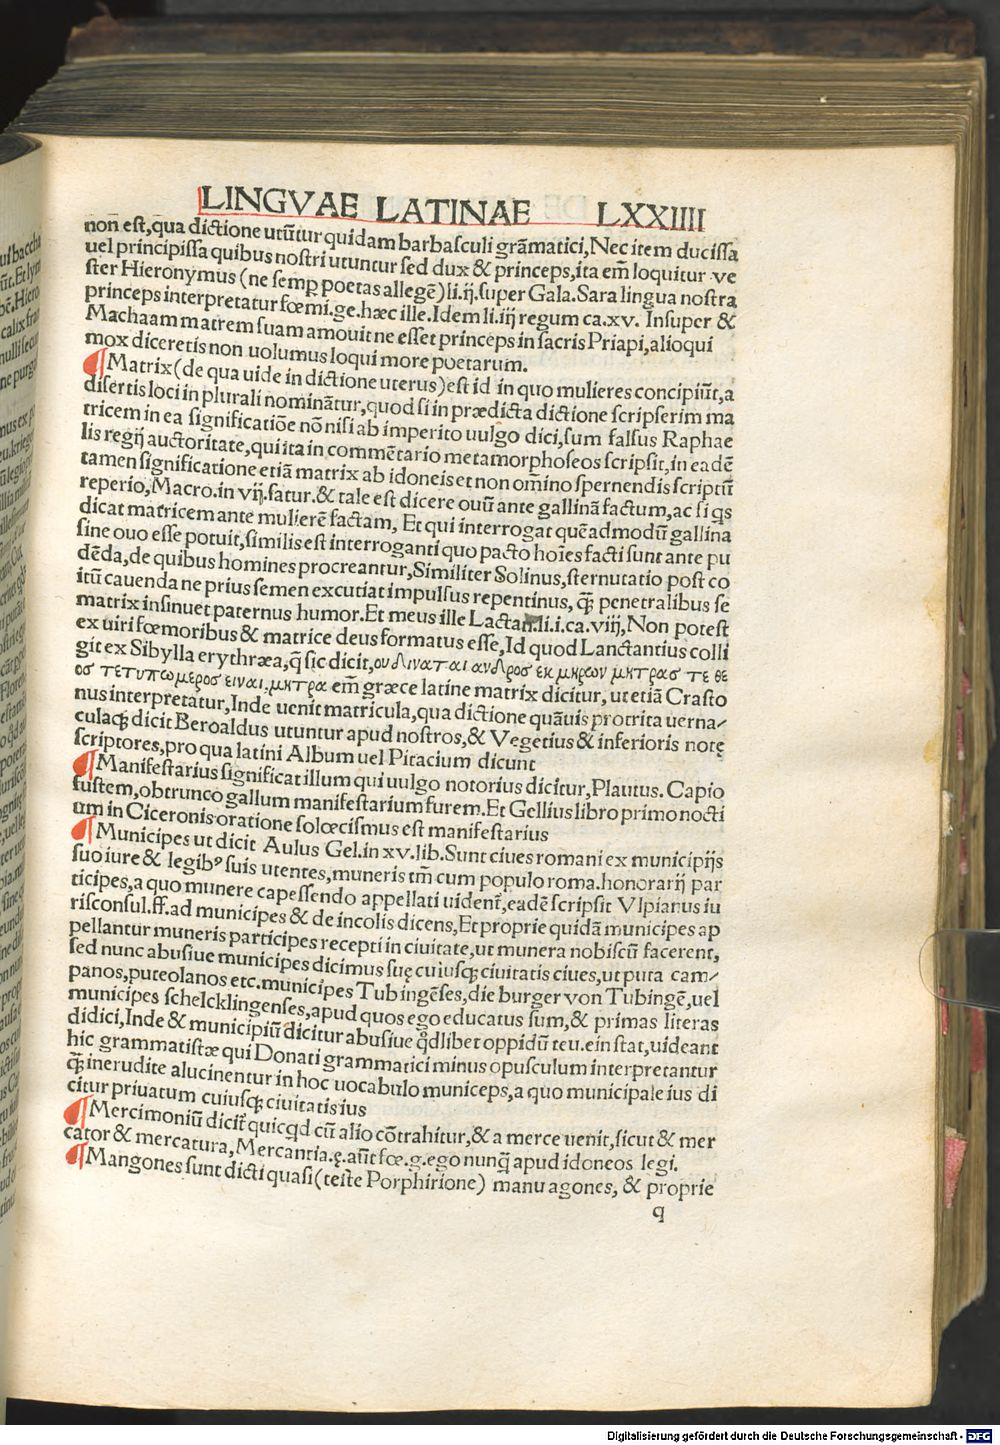 LINGVAE LATINAE LXXIIII
non̄ est, qua dictione utūtur quidam barbasculi grāmatici, Nec item ducissa
uel principissa quibus nostri utuntur sed dux & princeps, ita em̄ loquitur ve
ster Hieronymus (ne semp̱ poetas allegē) li.ij. super Gala. Sara lingua nostra
princeps interpretatur fœmi.ge. hæc ille. Idem li.iij regum ca.xv. Insuper &
Machaam matrem suam amouit ne esset princeps in sacris Priapi, alioqui
mox diceretis non uolumus loqui more poetarum.
¶ Matrix (de qua uide in dictione uterus) est id in quo mulieres concipiūt, a
disertis loci in plurali nominātur, quod si in prædicta dictione scripserim ma
tricem in ea significatiōe nō nisi ab imperito uulgo dici, sum falsus Raphae
lis regij auctoritate, qui ita in commētario metamorphoseos scripsit, in eadē
tamen significatione etiā matrix ab idoneis et non om̄ino spernendis scriptū
reperio, Macro. in vij. satur. & tale est dicere ouū ante gallinā factum, ac si qs
dicat matricem ante mulierē factam, Et qui interrogat quēadmodū gallina
sine ouo esse potuit, similis est interroganti quo pacto hoīes facti sunt ante pu
dēda, de quibus homines procreantur, Similiter Solinus, sternutatio post co
itū cauenda ne prius semen excutiat impulsus repentinus, q̄ꝫ penetralibus se
matrix insinuet paternus humor. Et meus ille Lactan. li.i.ca.viij, Non potest
ex uiri fœmoribus & matrice deus formatus esse, Id quod Lanctantius colli
git ex Sibylla erythræa, q̄ sic dicit, ου διναται ανδροσ εκ μηρων μητρασ τε θε
οσ τετυπωμεροσ ειναι. μητρα em̄ græce latine matrix dicitur, ut etiā Crasto
nus interpretatur, Inde uenit matricula, qua dictione quāuis protrita uerna⸗
culaqꝫ dicit Beroaldus utuntur apud nostros, & Vegetius & inferioris notę
scriptores, pro qua latini Album uel Pitacium dicunt
¶ Manifestarius significat illum qui uulgo notorius dicitur, Plautus. Capio
fustem, obtrunco gallum manifestarium furem. Et Gellius libro primo nocti
um in Ciceronis oratione solœcismus est manifestarius
¶ Municipes ut dicit Aulus Gel. in xv. lib. Sunt ciues romani ex municipijs
suo iure & legibꝰ suis utentes, muneris tm̄ cum populo roma. honorarij par
ticipes, a quo munere capessendo appellati uident̄, eadē scripsit Vlpiarus iu
risconsul. ff. ad municipes & de incolis dicens, Et proprie quidā municipes ap
pellantur muneris participes recepti in ciuitate, ut munera nobiscū facerent,
sed nunc abusiue municipes dicimus suę cuiusqꝫ ciuitatis ciues, ut puta cam⸗
panos, puteolanos etc. municipes Tubingēses, die burger von Tubingē, uel
municipes schelcklingenses, apud quos ego educatus sum, & primas literas
didici, Inde & municipiū dicitur abusiue q̄dlibet oppidū teu. ein stat, uideant
hic grammatistæ qui Donati grammatici minus opusculum interpretantur
q̄ꝫ inerudite alucinentur in hoc uocabulo municeps, a quo municipale ius di
citur priuatum cuiusqꝫ ciuitatis ius
¶ Mercimoniū dicit̄ quicqd cū alio cōtrahitur, & a merce uenit, sicut & mer
cator & mercatura, Mercantia.ę. aūt fœ.g. ego nunq̄ apud idoneos legi.
¶ Mangones sunt dicti quasi (teste Porphirione) manu agones, & proprie
q
Digitalisierung gefördert durch die Deutsche Forschungsgemeinschaft - DFG